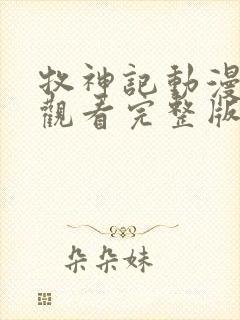 牧神記動漫
觀看完整版
朵朵妹